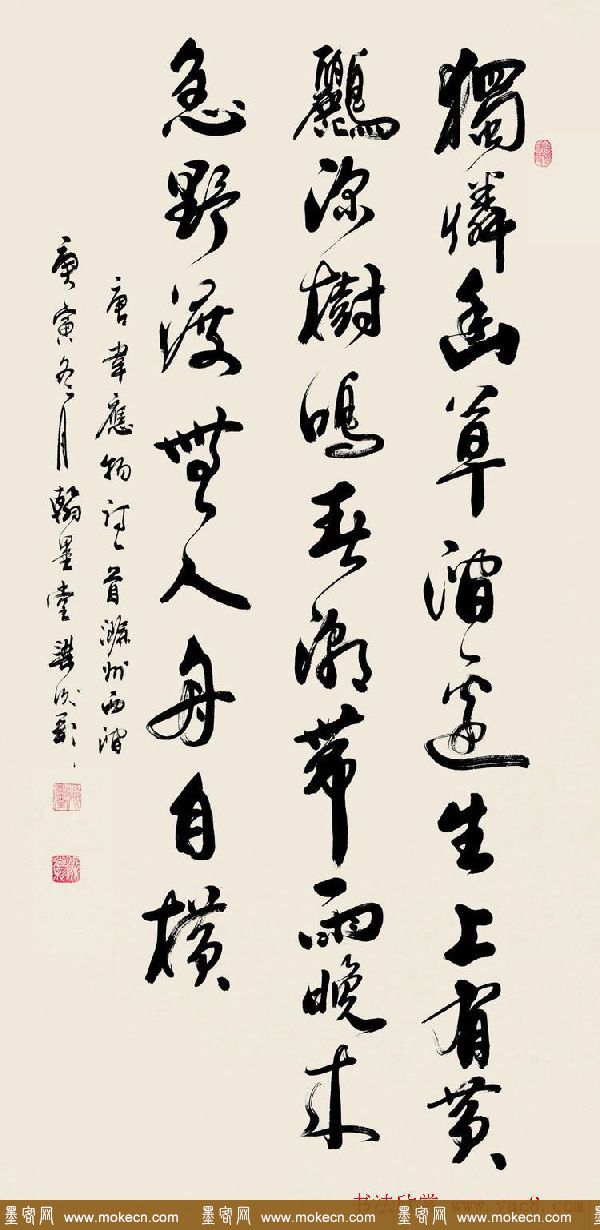 獨憐幽草澗邊生上有黄
鸝深樹鳴春潮帶雨晚來
急野渡無人舟自橫
唐韋應物詩一首滁州西澗
庚寅冬月翰墨堂
书法欣赏 www.yac8.
墨客网 www.mokecn.com 墨客网 www.mokecn.com 墨客网 www.mokecn.com